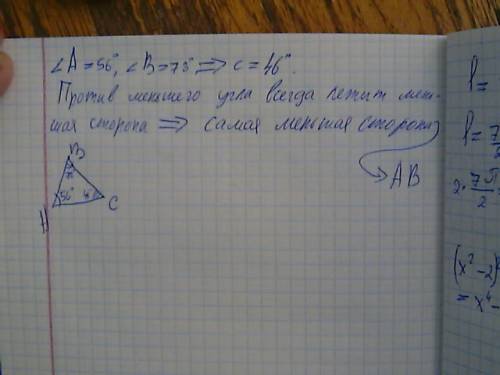 ∠A=56°, ∠B=78° ⇒ C=46°.
Против меньшего угла всегда лежит мень-
шая сторона ⇒ самая меньшая сторона
AB
B
78°
56° 46°
A
C
l=
l=
2·7π/2
(x²-2)
=x⁴-